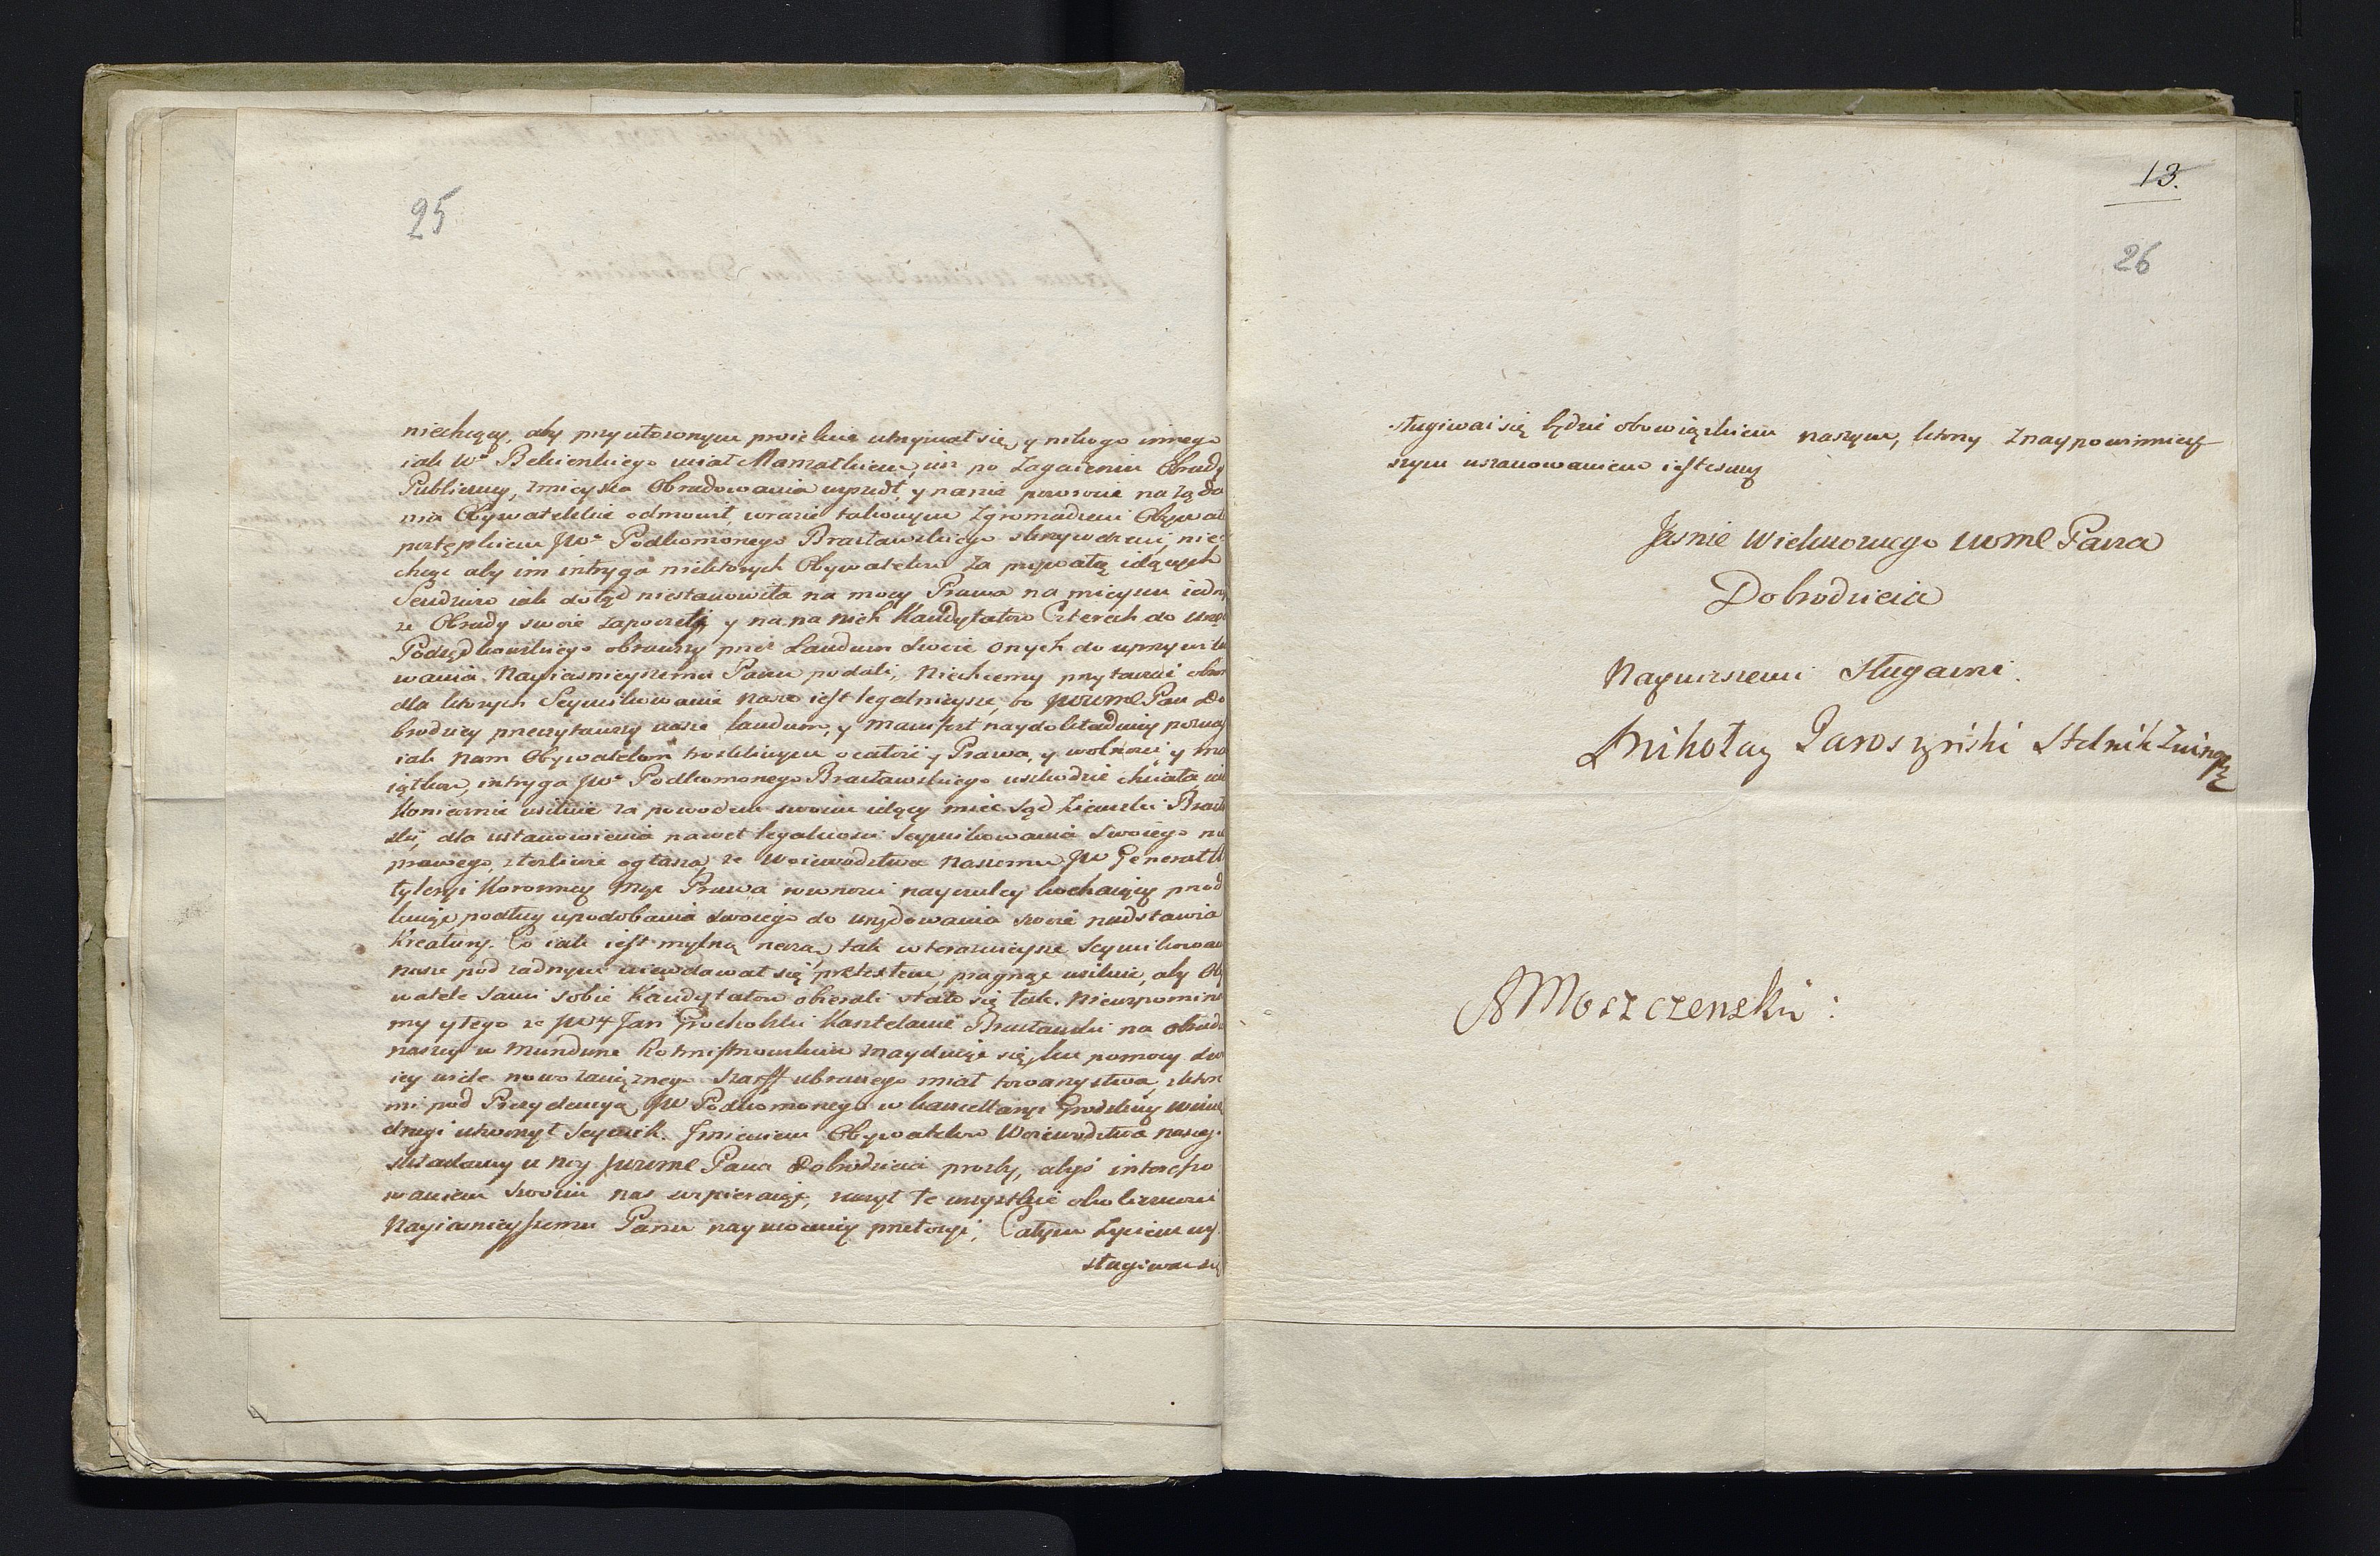 25
niechcący, aby przy utworonym proiekcie utrzymał się, y nikogo innego
iak Wº Bekierskiego miał Marszałkiem, iuż po zagaieniu Obrady
Publiczney, zmieysca Obradowania wyszedł, y nanie powrocie na żąda
nia Obywatelskie odmowił, wrazie takowym zgromadzeni Obywat
postępkiem JWº Podkomorzego Bracławskiego skrzywdzeni, nie
chcąc aby im intryga niektorych Obywatelow za prywatą idących
Sendziow iak dotąd niestanowiła na mocy Prawa na mieyscu iedn
ze Obrady swoie zapoczęli, y na na nich Kandydatow Czterech do Urzę
Podsędkowskiego obrawszy przez Laudum swoie onych do uprzywile
wania Nayiasnieyszemu Panu podali, Niechcemy przytaczać
dla ktorych Seymikowanie nasze iest legalnieysze, bo JWWMC Pan Do
brodziey przeczytawszy nasze laudum, y manifest naydokładniey poznasz
iak nam Obywatelom troskliwym o całość y Prawa, y wolności y ma
iątkow, intryga JWº Podkomorzego Bracławskiego uszkodzić chciała
Koniecznie usilnie za powodem swoim idący mieć Sąd Ziemski Bracł
ski, dla ustanowienia nawet legalności Seymikowania swoiego nie
prawego, złośliwie ogłasza, że Woiewodztwu Naszemu JW Generał
tyleryi Koronney moc Prawa rowności nayczuley kochaiący
podług upodobania swoiego do urzędowania swoie nadstawia
Kreatury. Co iak iest mylną rzeczą, tak w teraznieysze Seymikowan
nasze pod żadnym niewdawał się pretextem, pragnąc usilnie, aby Oby
watele sami sobie Kandydatow obierali stało się tak. Niewspomina
my y tego że JWY Jan Grocholski Kasztelanic Bracławski na obrad
naszey w Mundurze Rotmistrzowskim znayduiąc się, ku pomocy
iey wiele nowo zaciężnego Szarff ubranego miał towarzystwa, z ktor
mi pod Prezydencyą JW Podkomorzego w kancellaryi Grodzkiey
drugi utworzył Seymik. Imieniem Obywatelow Woiewodztwa naszeg
składamy u nog JWWMC Pana Dobrodzieia prozby, abyś interesso
waniem swoim nas wspieraiąc, raczył te wszystkie okoliczności
Nayiasnieyszemu Panu naymocniey przełożyć, Całym życiem wy
sługiwać się
13.
26
sługiwać się będzie obowiązkiem naszym, ktorzy z naypowinniey
szym uszanowaniem iestesmy
Jasnie Wielmoznego WMC Pana
Dobrodzieia
Nayniższemi Sługami
Mikołay Jaroszyński Stolnik
AMoszczenski: